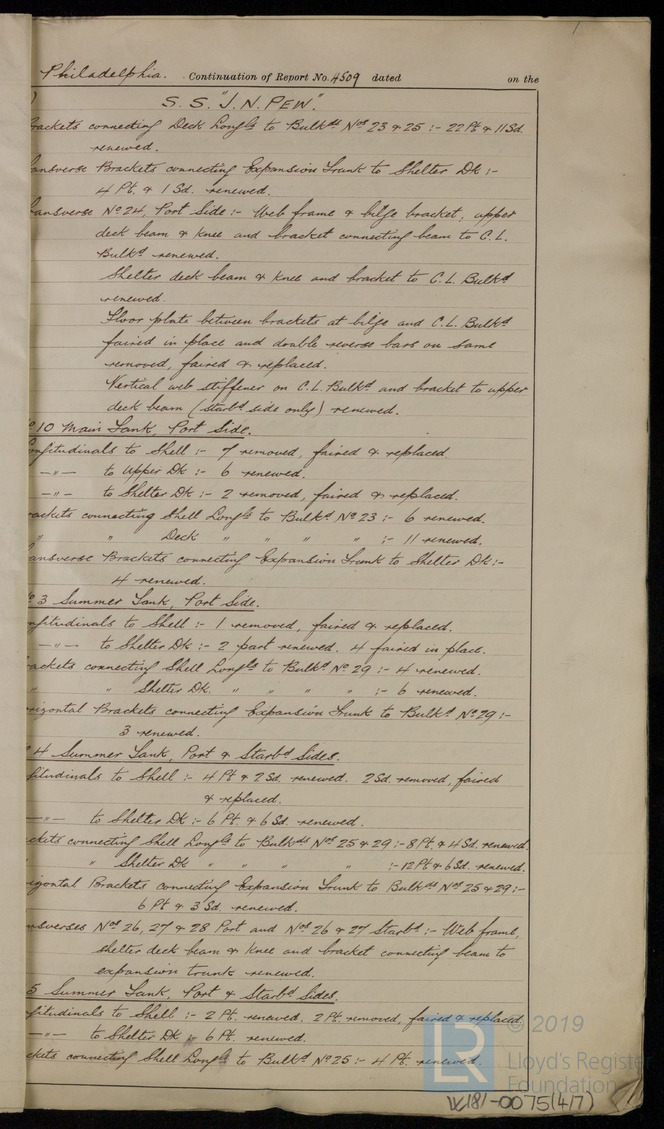 Philadelphia. Continuation of Report No. 4509 dated on the
S.S. "J.N. PEW".
rackets connecting Deck Longls to Bulkds Nos 23 & 25 :- 22 Pt & 11 Sd.
renewed.
ansverse Brackets connecting Expansion Trunk to Shelter Dk :-
4 Pt. & 1 Sd. renewed.
ansverse No 24, Port Side :- Web frame & bilge bracket, upper
deck beam & knee and bracket connecting beam to C.L.
Bulkd renewed.
Shelter deck beam & knee and bracket to C.L. Bulkd
renewed.
Floor plate between brackets at bilge and C.L. Bulkd
faired in place and double reverse bars on same
removed, faired & replaced.
Vertical web stiffener on C.L. Bulkd and bracket to upper
deck beam (starbd side only) renewed.
o 10 Main Tank, Port Side.
ongitudinals to Shell :- 7 removed, faired & replaced
—"— to Upper Dk :- 6 renewed.
—"— to Shelter Dk :- 2 removed, faired & replaced.
rackets connecting Shell Longls to Bulkd No 23 :- 6 renewed.
" " Deck " " " " :- 11 renewed.
ansverse Brackets connecting Expansion Trunk to Shelter Dk :-
4 renewed.
o 3 Summer Tank, Port Side.
ngitudinals to Shell :- 1 removed, faired & replaced.
—"— to Shelter Dk :- 2 part renewed. 4 faired in place.
rackets connecting Shell Longls to Bulkd No 29 :- 4 renewed.
" " Shelter Dk. " " " " :- 6 renewed.
rizontal Brackets connecting Expansion Trunk to Bulkd No 29 :-
3 renewed.
o 4 Summer Tank, Port & Starbd Sides.
gitudinals to Shell :- 4 Pt & 2 Sd. renewed. 2 Sd. removed, faired
& replaced.
—"— to Shelter Dk :- 6 Pt & 6 Sd. renewed.
ckets connecting Shell Longls to Bulkds Nos 25 & 29 :- 8 Pt & 4 Sd. renewed
" " Shelter Dk " " " " :- 12 Pt & 6 Sd. renewed.
izontal Brackets connecting Expansion Trunk to Bulkds Nos 25 & 29 :-
6 Pt & 3 Sd. renewed.
nsverses Nos 26, 27 & 28 Port and Nos 26 & 27 Starbd :- Web frame,
shelter deck beam & knee and bracket connecting beam to
expansion trunk renewed.
5 Summer Tank, Port & Starbd Sides.
gitudinals to Shell :- 2 Pt. renewed. 2 Pt. removed, faired & replaced
—"— to Shelter Dk :- 6 Pt. renewed.
ckets connecting Shell Longls to Bulkd No 25 :- 4 Pt. renewed.
© 2019
Lloyd's Register
Foundation
W181-0075(4/7)